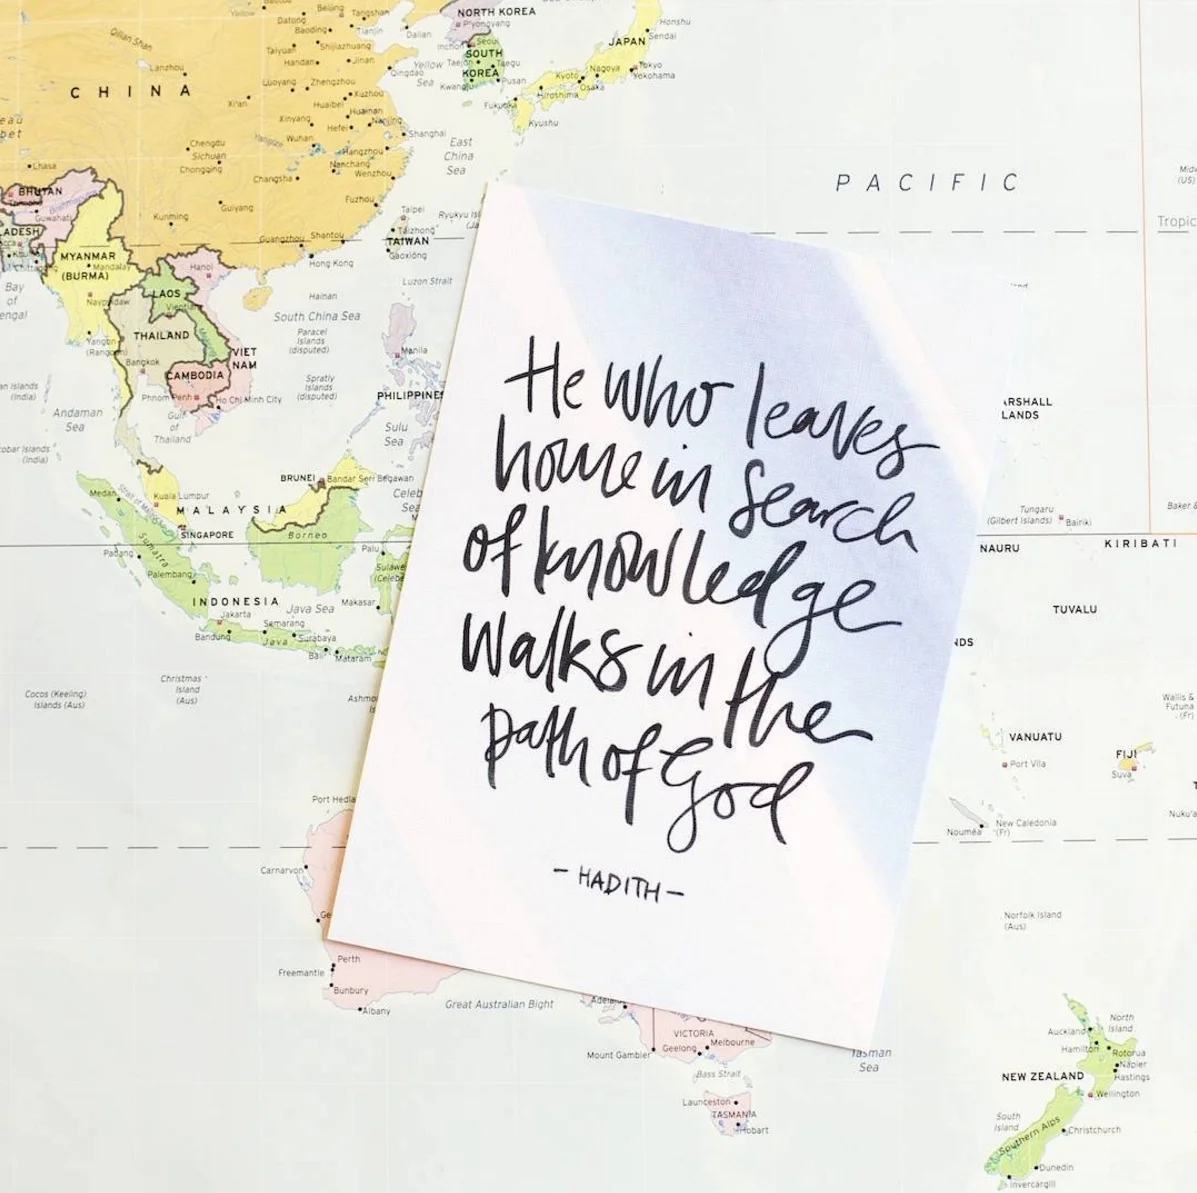 He who leaves
home in search
of knowledge
walks in the
path of God
- HADITH -
NORTH KOREA
P'yongyang
Seoul
SOUTH
KOREA
Taejon
Taegu
Pusan
Kwangju
JAPAN
Honshu
Sendai
Tokyo
Yokohama
Nagoya
Kyoto
Osaka
Hiroshima
Fukuoka
Kyushu
CHINA
Qilian Shan
Lanzhou
Beijing
Tangshan
Tianjin
Datong
Baoding
Dalian
Taiyuan
Shijiazhuang
Handan
Jinan
Qingdao
Yellow
Sea
Luoyang
Zhengzhou
Xi'an
Xuzhou
Huaibei
Huainan
Xinyang
Hefei
Nanjing
Wuhan
Yangtze
Shanghai
Hangzhou
Nanchang
Wenzhou
Changsha
Chengdu
Sichuan
Chongqing
Lhasa
Fuzhou
Guiyang
Kunming
Guangzhou
Shantou
Hong Kong
East
China
Sea
Taipei
Taizhong
TAIWAN
Gaoxiong
Luzon Strait
PACIFIC
Tropic
BHUTAN
Guwahati
MYANMAR
(BURMA)
Mandalay
Naypyidaw
Yangon
(Rangoon)
LAOS
Vientiane
Hanoi
THAILAND
Bangkok
VIET
NAM
CAMBODIA
Phnom Penh
Ho Chi Minh City
Gulf
of
Thailand
Hainan
South China Sea
Paracel
Islands
(disputed)
Spratly
Islands
(disputed)
Manila
PHILIPPINES
Sulu
Sea
Bay
of
Andaman
Sea
BRUNEI
Bandar Seri Begawan
Kuala Lumpur
MALAYSIA
SINGAPORE
Medan
Strait of Malacca
Sumatra
Padang
Palembang
Borneo
Palu
Makasar
INDONESIA
Jakarta
Java Sea
Semarang
Bandung
Java
Surabaya
Bali
Mataram
Christmas
Island
(Aus)
Cocos (Keeling)
Islands (Aus)
Port Hedla
Carnarvon
Perth
Fremantle
Bunbury
Albany
Great Australian Bight
Adelaide
VICTORIA
Geelong
Melbourne
Mount Gambier
Bass Strait
Launceston
TASMANIA
Hobart
Tasman
Sea
Tungaru
(Gilbert Islands)
Bairiki
NAURU
KIRIBATI
TUVALU
VANUATU
Port Vila
FIJI
Suva
Wallis &
Futuna
(Fr)
Nouméa
New Caledonia
(Fr)
Norfolk Island
(Aus)
North
Island
Auckland
Hamilton
Rotorua
Napier
Hastings
NEW ZEALAND
Wellington
South
Island
Southern Alps
Christchurch
Dunedin
Invercargill